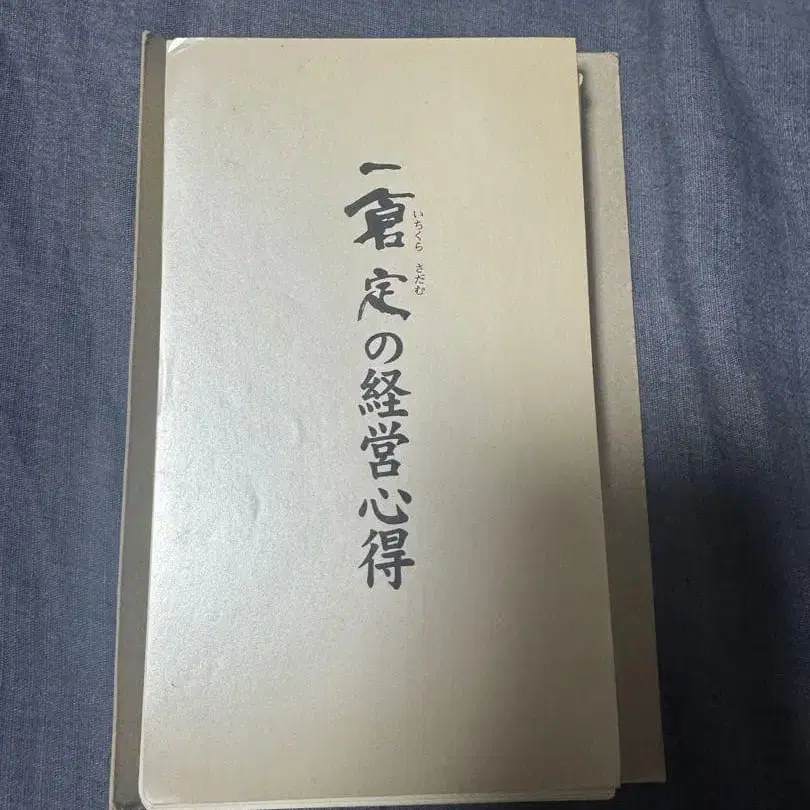 一倉定の経営心得
いちくら さだむ